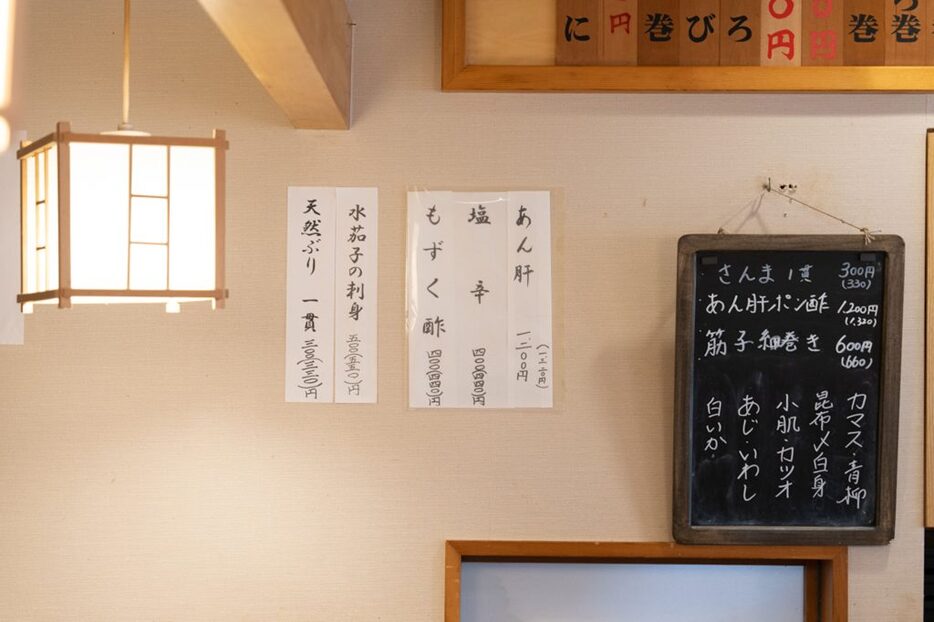 に 円 巻 び ろ 円 円 巻 巻
水茄子の刺身 五〇〇(五五〇)円
天然ぶり 一貫 三〇〇(三三〇)円
あん肝 一、二〇〇円
(一、三二〇円)
塩辛 四〇〇(四四〇)円
もずく酢 四〇〇(四四〇)円
さんま 1貫 300円
(330)
あん肝ポン酢 1,200円
(1,320)
筋子細巻き 600円
(660)
カマス・青柳
昆布〆白身
小肌・カツオ
あじ・いわし
白いか・